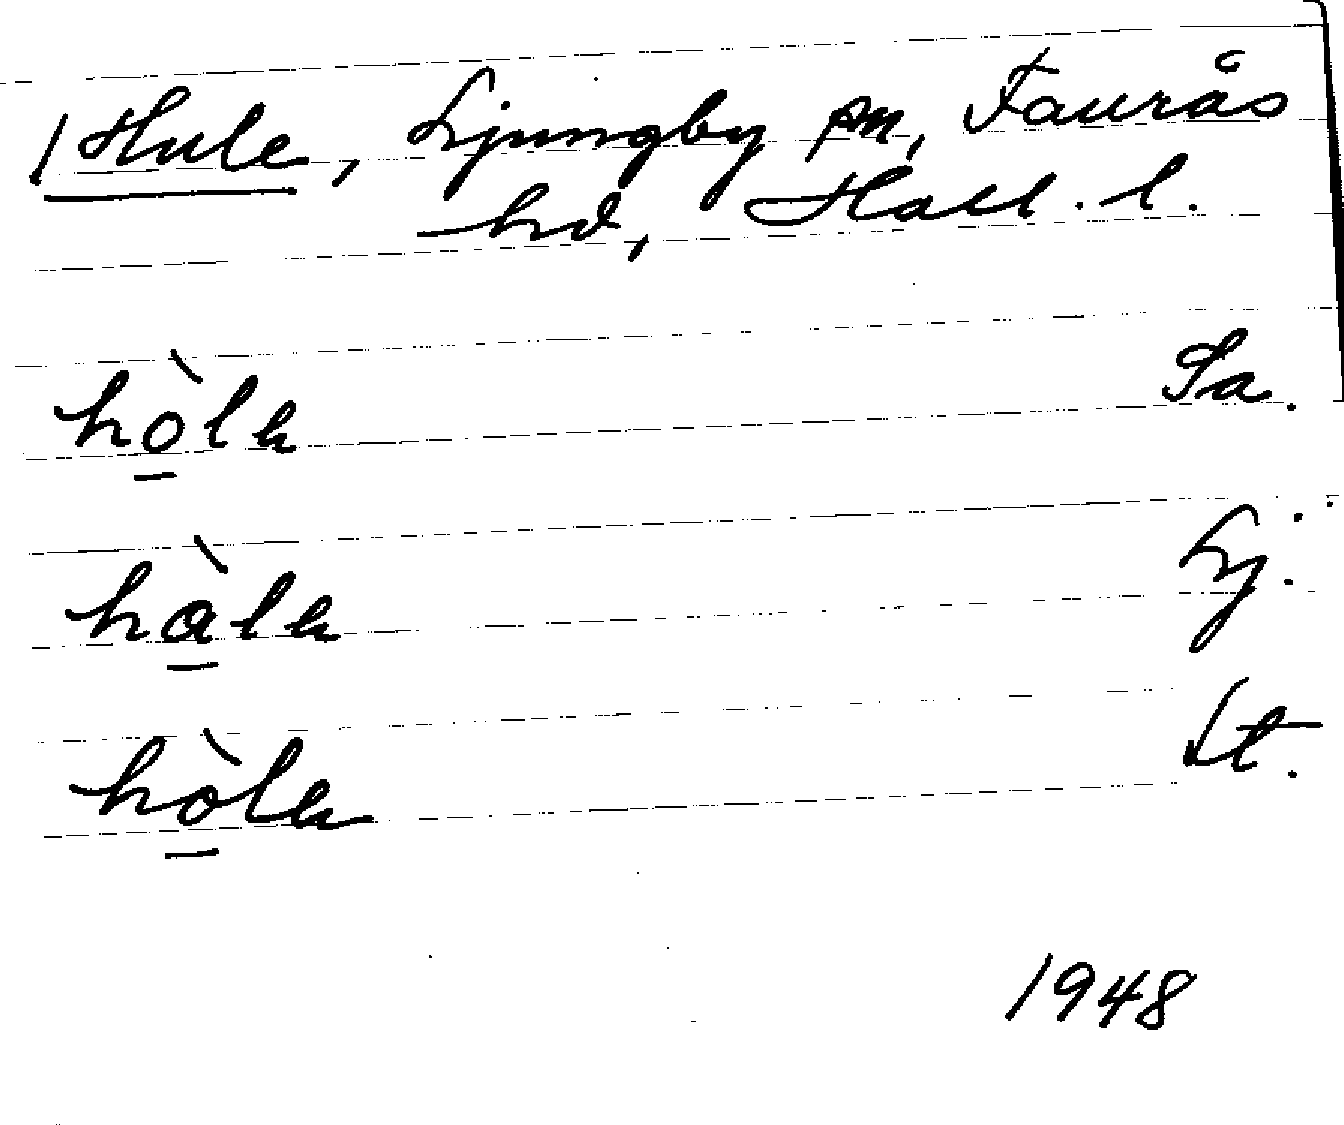 1 Hule, Ljungby sn, Faurås
hd, Hall. l.
hòlə Sa.
hàlə Lj.
hòlə St.
1948